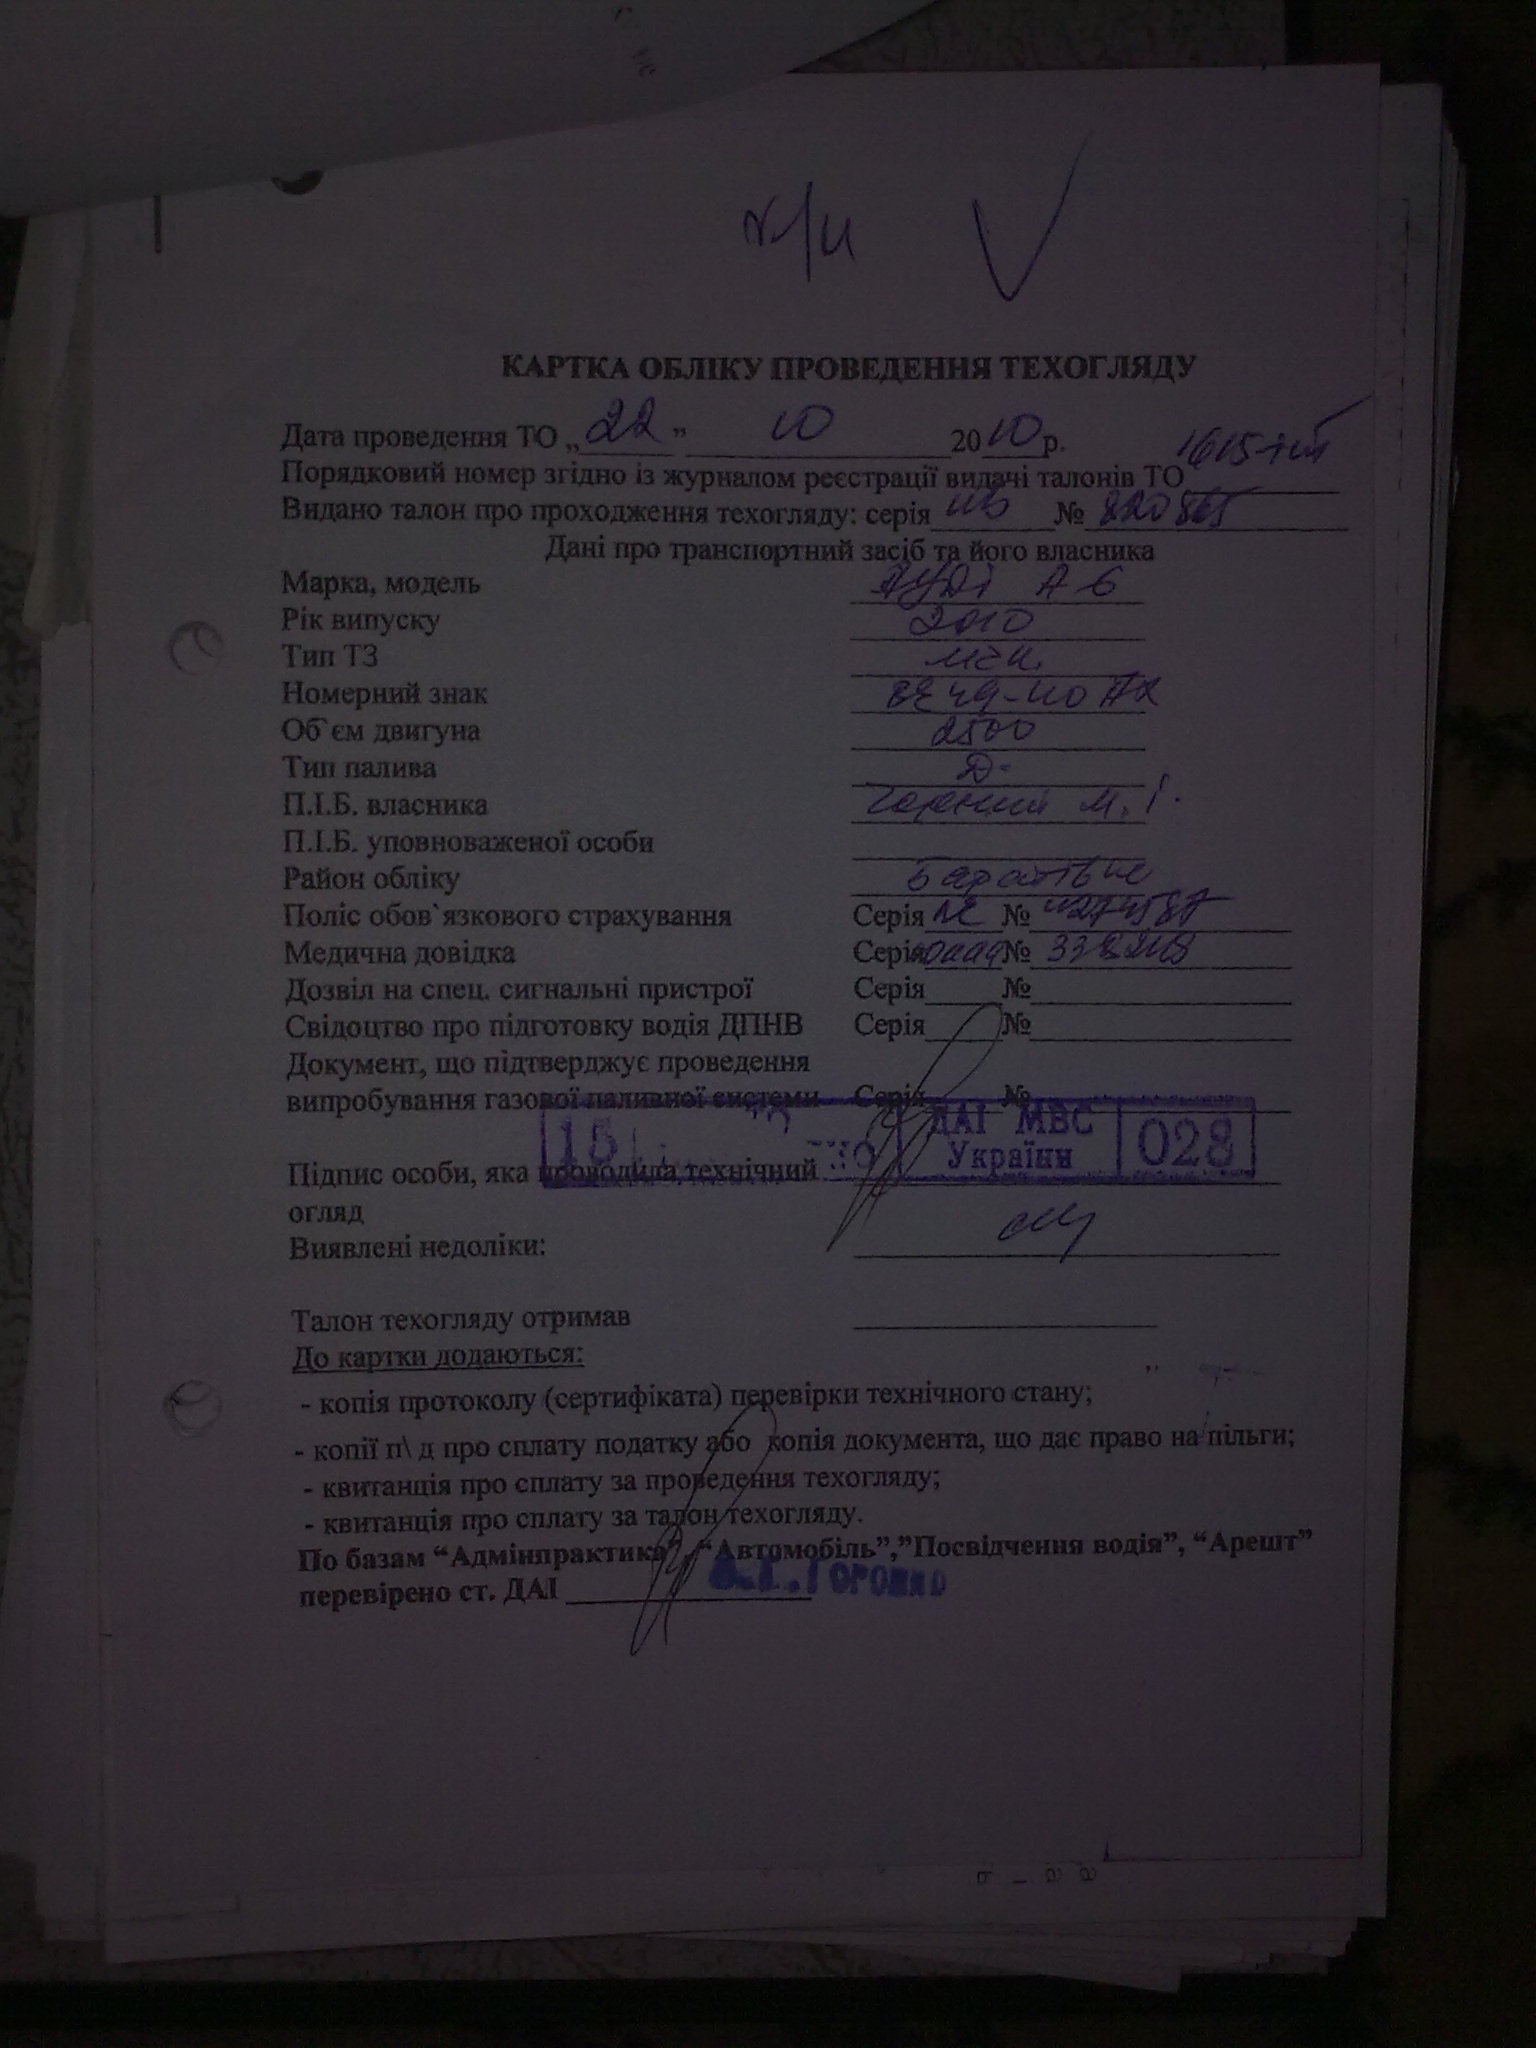 КАРТКА ОБЛІКУ ПРОВЕДЕННЯ ТЕХОГЛЯДУ
Дата проведення ТО „ 22 ” 10 2010 р.
Порядковий номер згідно із журналом реєстрації видачі талонів ТО
Видано талон про проходження техогляду: серія № 820865
Дані про транспортний засіб та його власника
Марка, модель Ауді А6
Рік випуску 2010
Тип ТЗ
Номерний знак
Об`єм двигуна 2500
Тип палива Д
П.І.Б. власника М. І.
П.І.Б. уповноваженої особи
Район обліку
Поліс обов`язкового страхування Серія №
Медична довідка Серія №
Дозвіл на спец. сигнальні пристрої Серія №
Свідоцтво про підготовку водія ДПНВ Серія №
Документ, що підтверджує проведення
випробування газової паливної системи Серія №
ДАІ МВС
України 028
Підпис особи, яка проводила технічний
огляд
Виявлені недоліки:
Талон техогляду отримав
До картки додаються:
- копія протоколу (сертифіката) перевірки технічного стану;
- копії п\ д про сплату податку або копія документа, що дає право на пільги;
- квитанція про сплату за проведення техогляду;
- квитанція про сплату за талон техогляду.
По базам “Адмінпрактика”, “Автомобіль”,”Посвідчення водія”, “Арешт”
перевірено ст. ДАІ